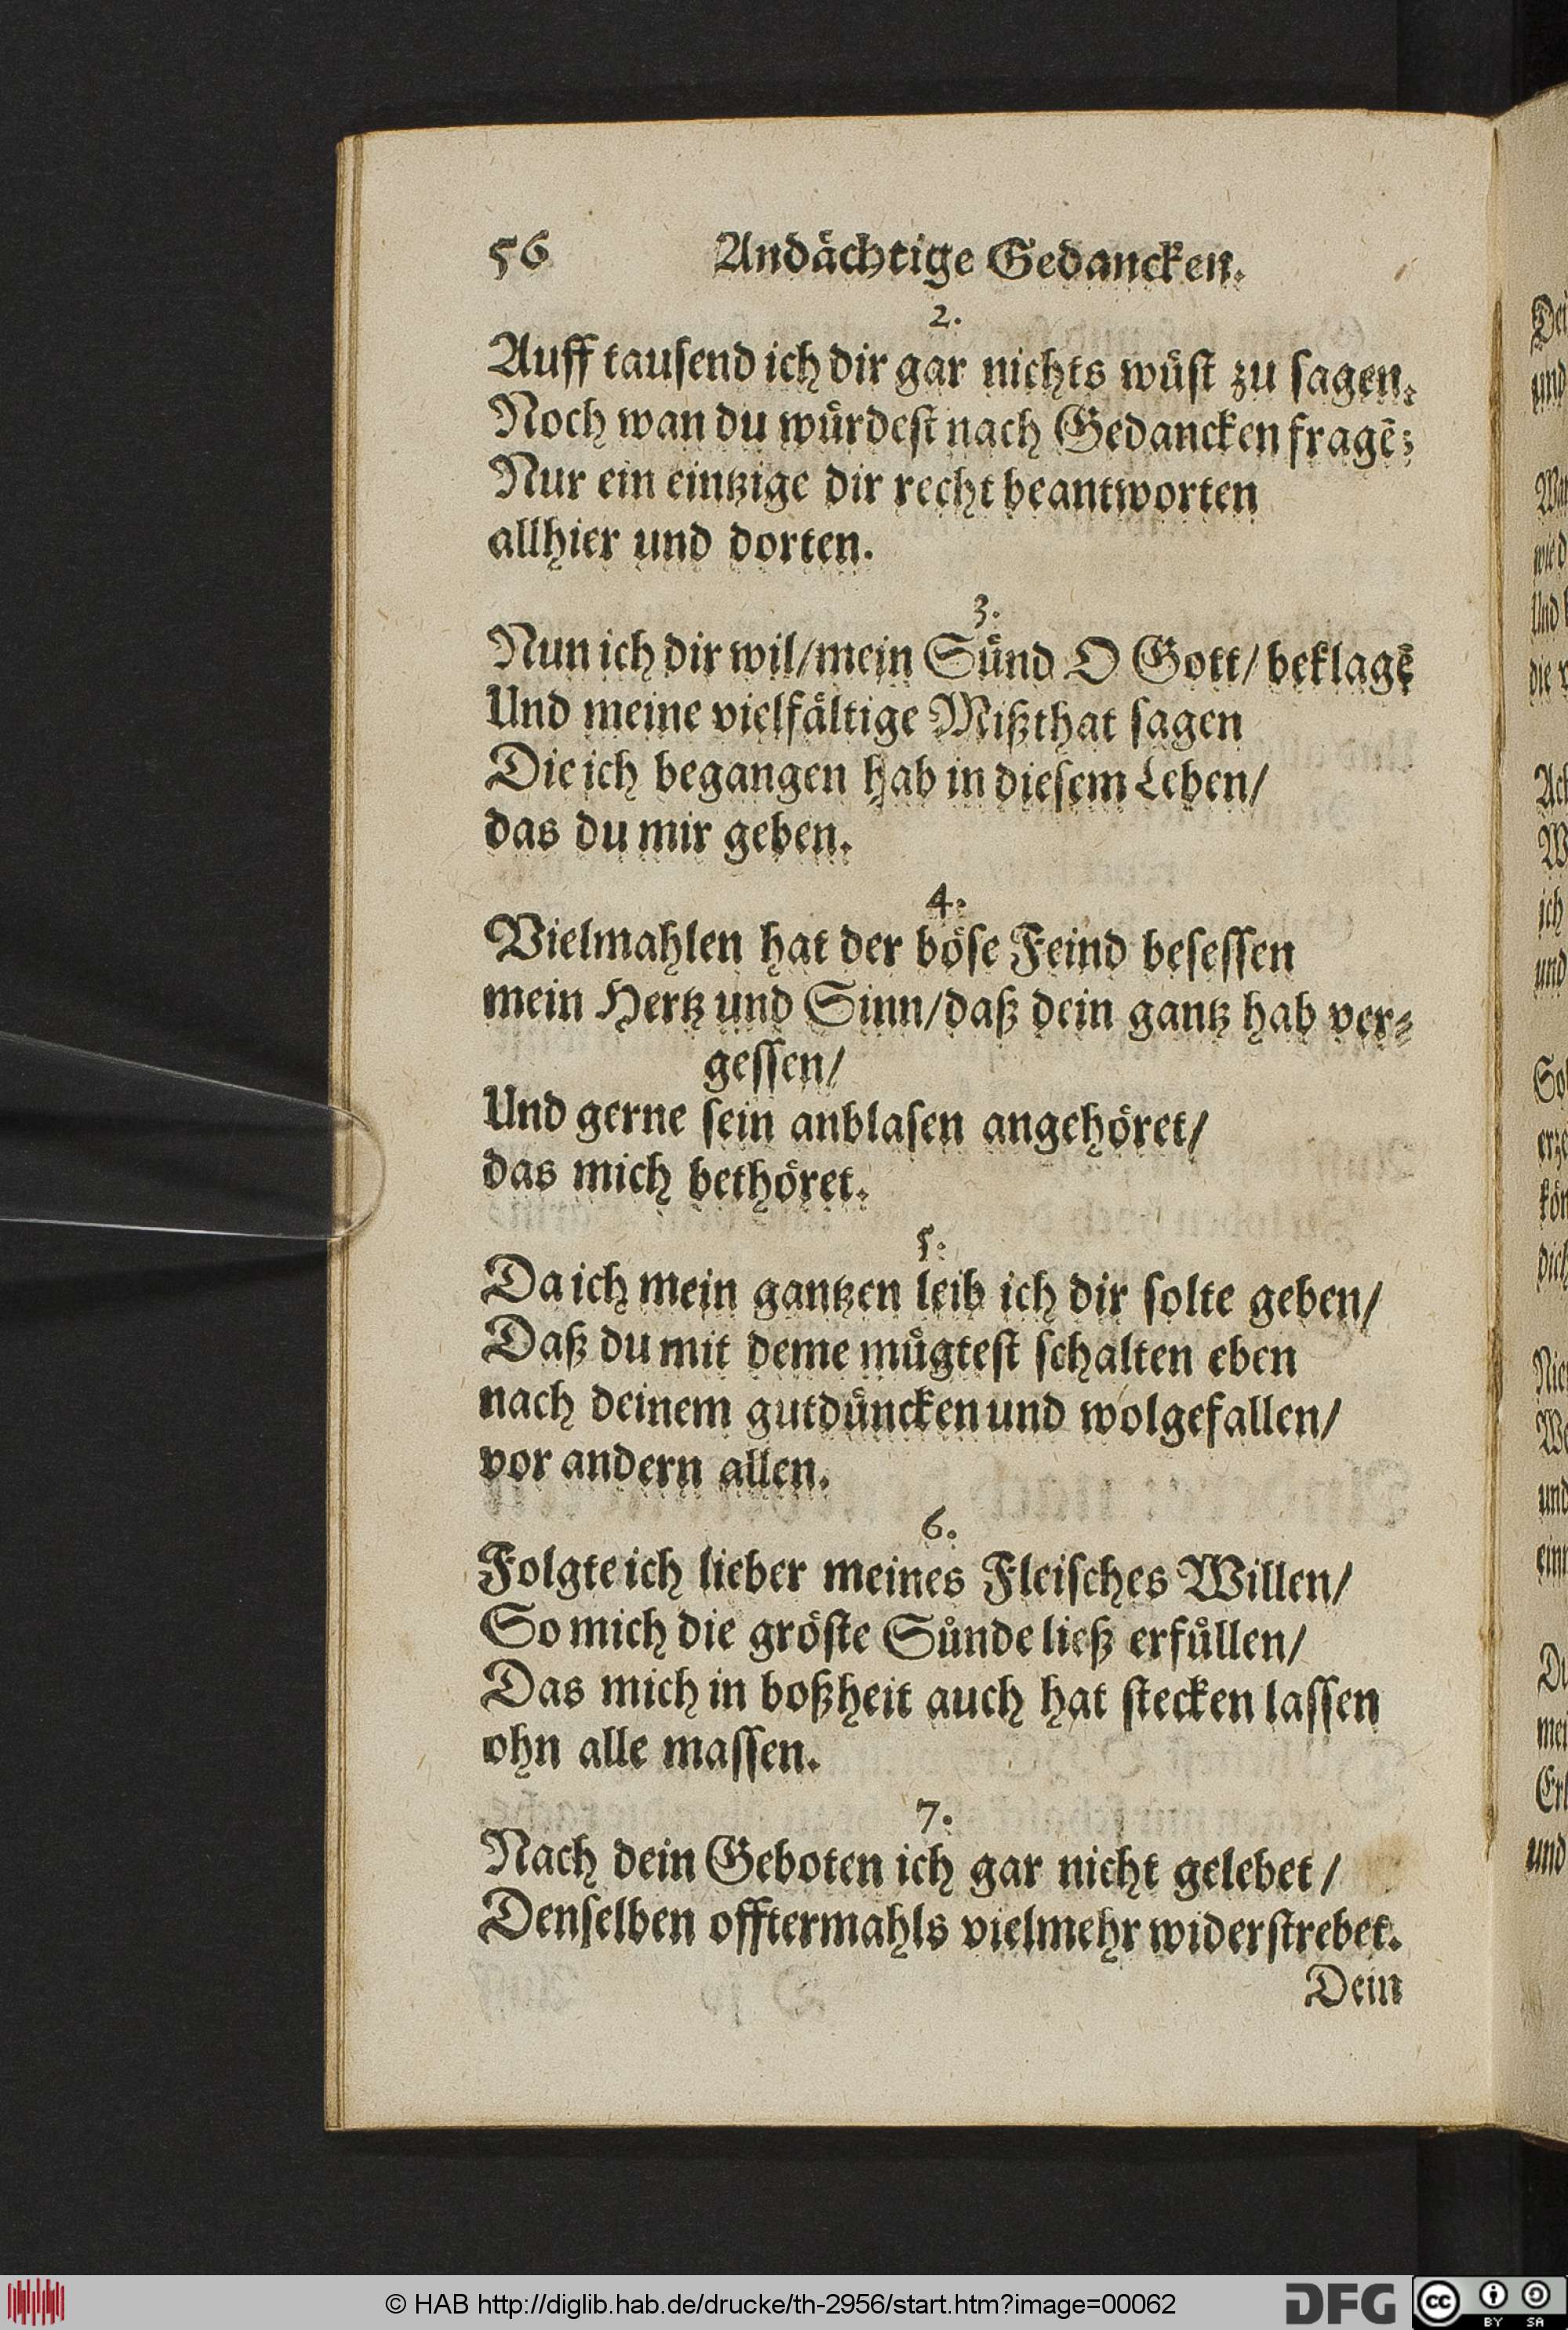 56 Andächtige Gedancken.
2.
Auff tausend ich dir gar nichts wüst zu sagen.
Noch wan du würdest nach Gedancken fragẽ;
Nur ein eintzige dir recht beantworten
allhier und dorten.
3.
Nun ich dir wil/mein Sünd O Gott/ beklagẽ
Und meine vielfältige Mißthat sagen
Die ich begangen hab in diesem Leben/
das du mir geben.
4.
Vielmahlen hat der böse Feind besessen
mein Hertz und Sinn/daß dein gantz hab ver-
gessen/
Und gerne sein anblasen angehöret/
das mich bethöret.
5.
Da ich mein gantzen leib ich dir solte geben/
Daß du mit deme mügtest schalten eben
nach deinem gutdüncken und wolgefallen/
vor andern allen.
6.
Folgte ich lieber meines Fleisches Willen/
So mich die gröste Sünde ließ erfüllen/
Das mich in boßheit auch hat stecken lassen
ohn alle massen.
7.
Nach dein Geboten ich gar nicht gelebet/
Denselben offtermahls vielmehr widerstrebet.
Dein
© HAB http://diglib.hab.de/drucke/th-2956/start.htm?image=00062
DFG
cc BY SA